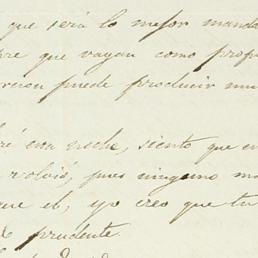 que será lo mejor manda
que vayan como prop
puede producir mu
esa noche, siento que
volvió, pues ninguno ma
que el, yo creo que tu
prudente.